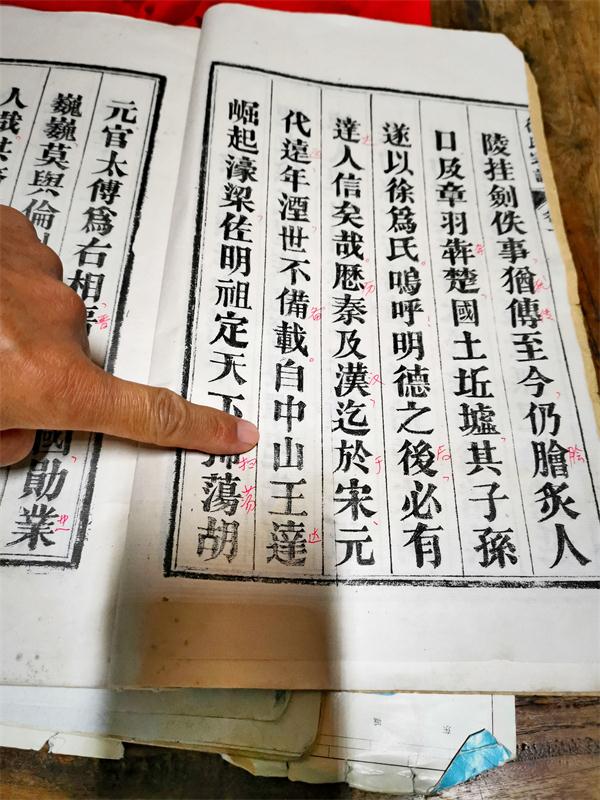 陵挂劍佚事猶傳至今仍膾炙人
口及章羽犇楚國土坵墟其子孫
遂以徐爲氏嗚呼明德之後必有
達人信矣哉厯秦及漢迄於宋元
代遠年湮世不備載自中山王達
崛起濠梁佐明祖定天下掃蕩胡
元官太傅爲右相
巍巍莫與倫 國勛業
人哉其